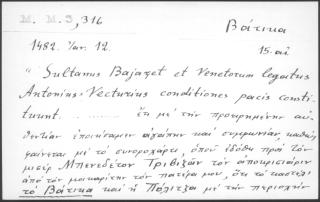 M. M. 3, 316
Βάτικα
1482. Ιαν. 12.
15. αι
" Sultanus Bajazet et Venetorum legatus
Antonius Vecturius conditiones pacis consti-
tuunt . . . . . . . . . ἔτι μὲ τὴν προειρημένην αὐ-
θεντίαν ἐποιήσαμεν ἀγάπην καὶ συμφωνίαν, καθὼς
φαίνεται μὲ τὸ συνοροχάρτι, ὁποῦ ἐδόθη πρὸς τὸν
μισὲρ Μπενεδέτον Τριβιζὰν τὸν ἀποκρισιάριν
ἀπὸ τὸν μακαρίτην τὸν πατέρα μου, ὅτι τὸ καστέλι
τὸ Βάτικα καὶ ἡ Πολίτζα μὲ τὴν περιοχὴν